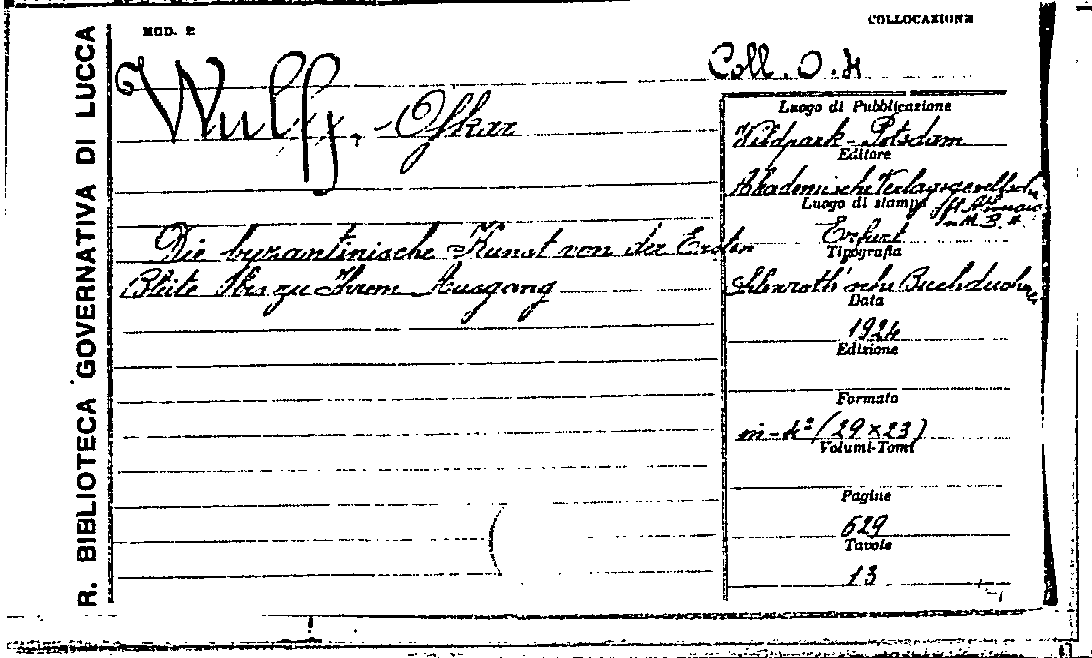 MOD. 2
COLLOCAZIONE
R. BIBLIOTECA GOVERNATIVA DI LUCCA
Coll. O. H
Wulff, Oskar
Luogo di Pubblicazione
Wildpark - Potsdam
Editore
Akademische Verlagsgesellsch.
Luogo di stampa
Erfurt
Tipografia
Die byzantinische Kunst von der Ersten
Blüte bis zu Ihrem Ausgang
Ohlenroth'sche Buchdruckerei
Data
1924
Edizione
Formato
in-4º (29 x 23)
Volumi-Tomi
Pagine
629
Tavole
13